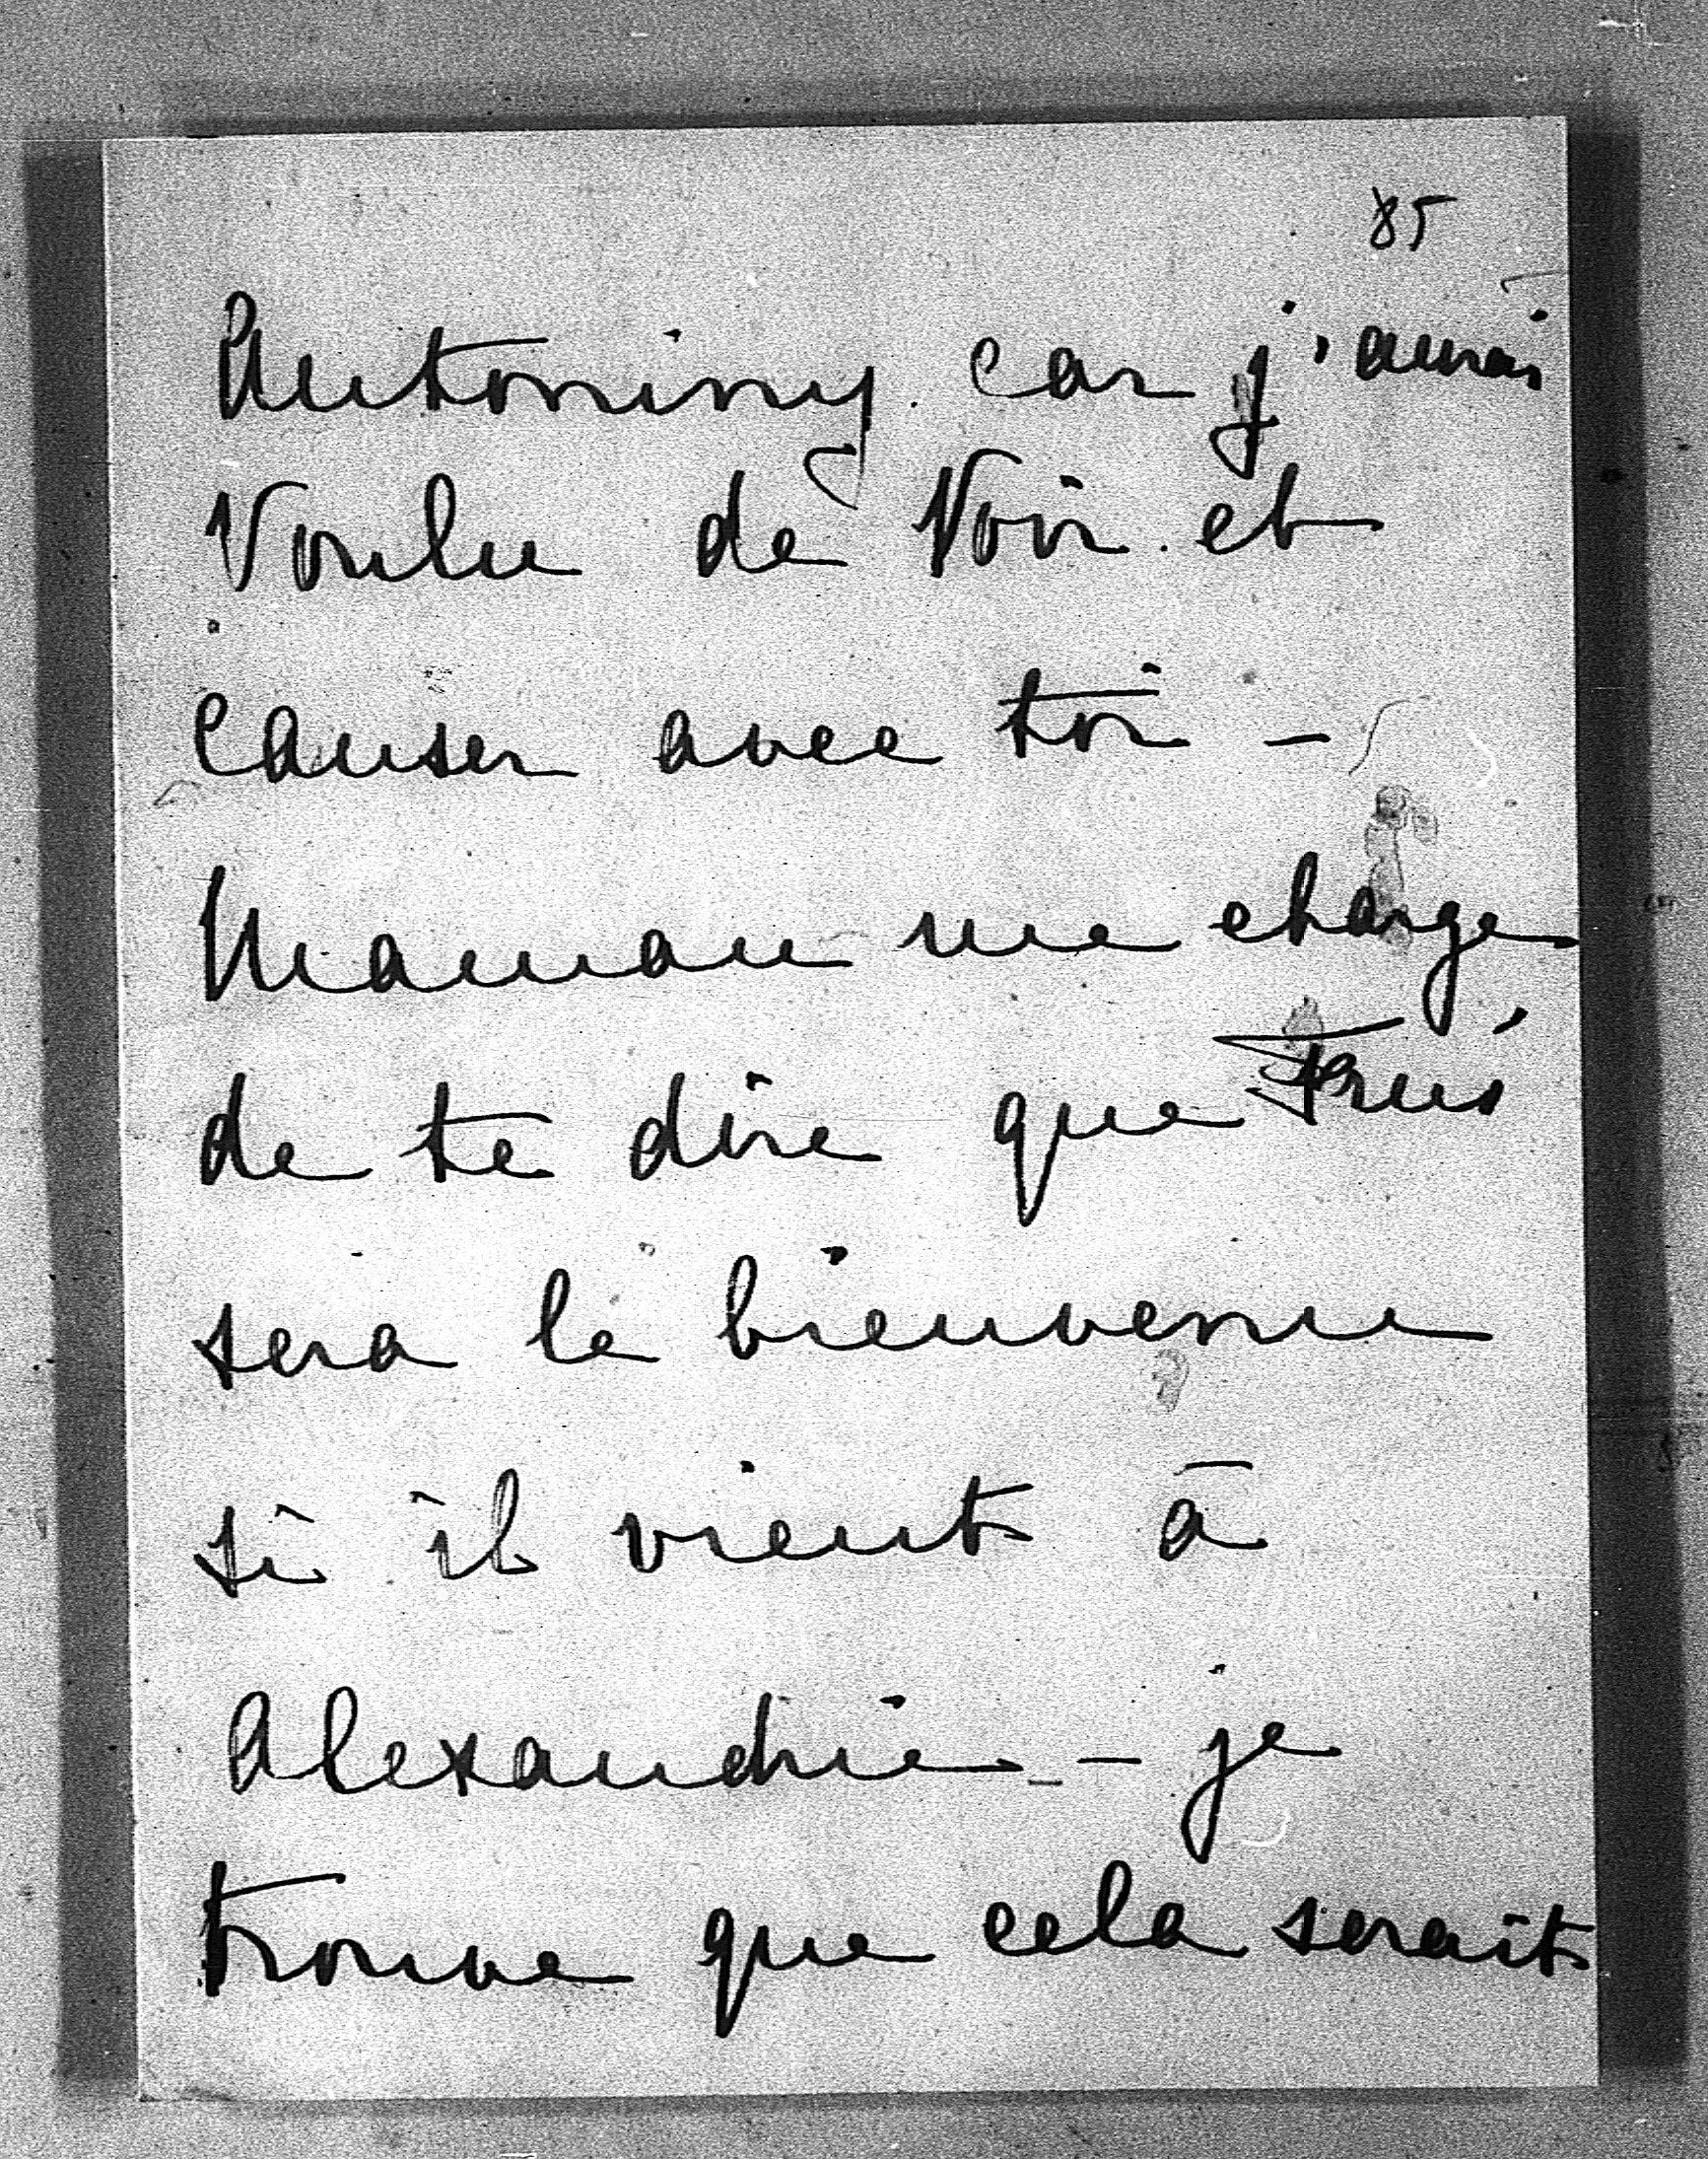 85
Antoniny car j'aurai
Voulu de Voir et
Causer avec toi –
Maman me charge
de te dire que
sera le bienvenu
si il vient à
Alexandrie – je
trouve que cela serait